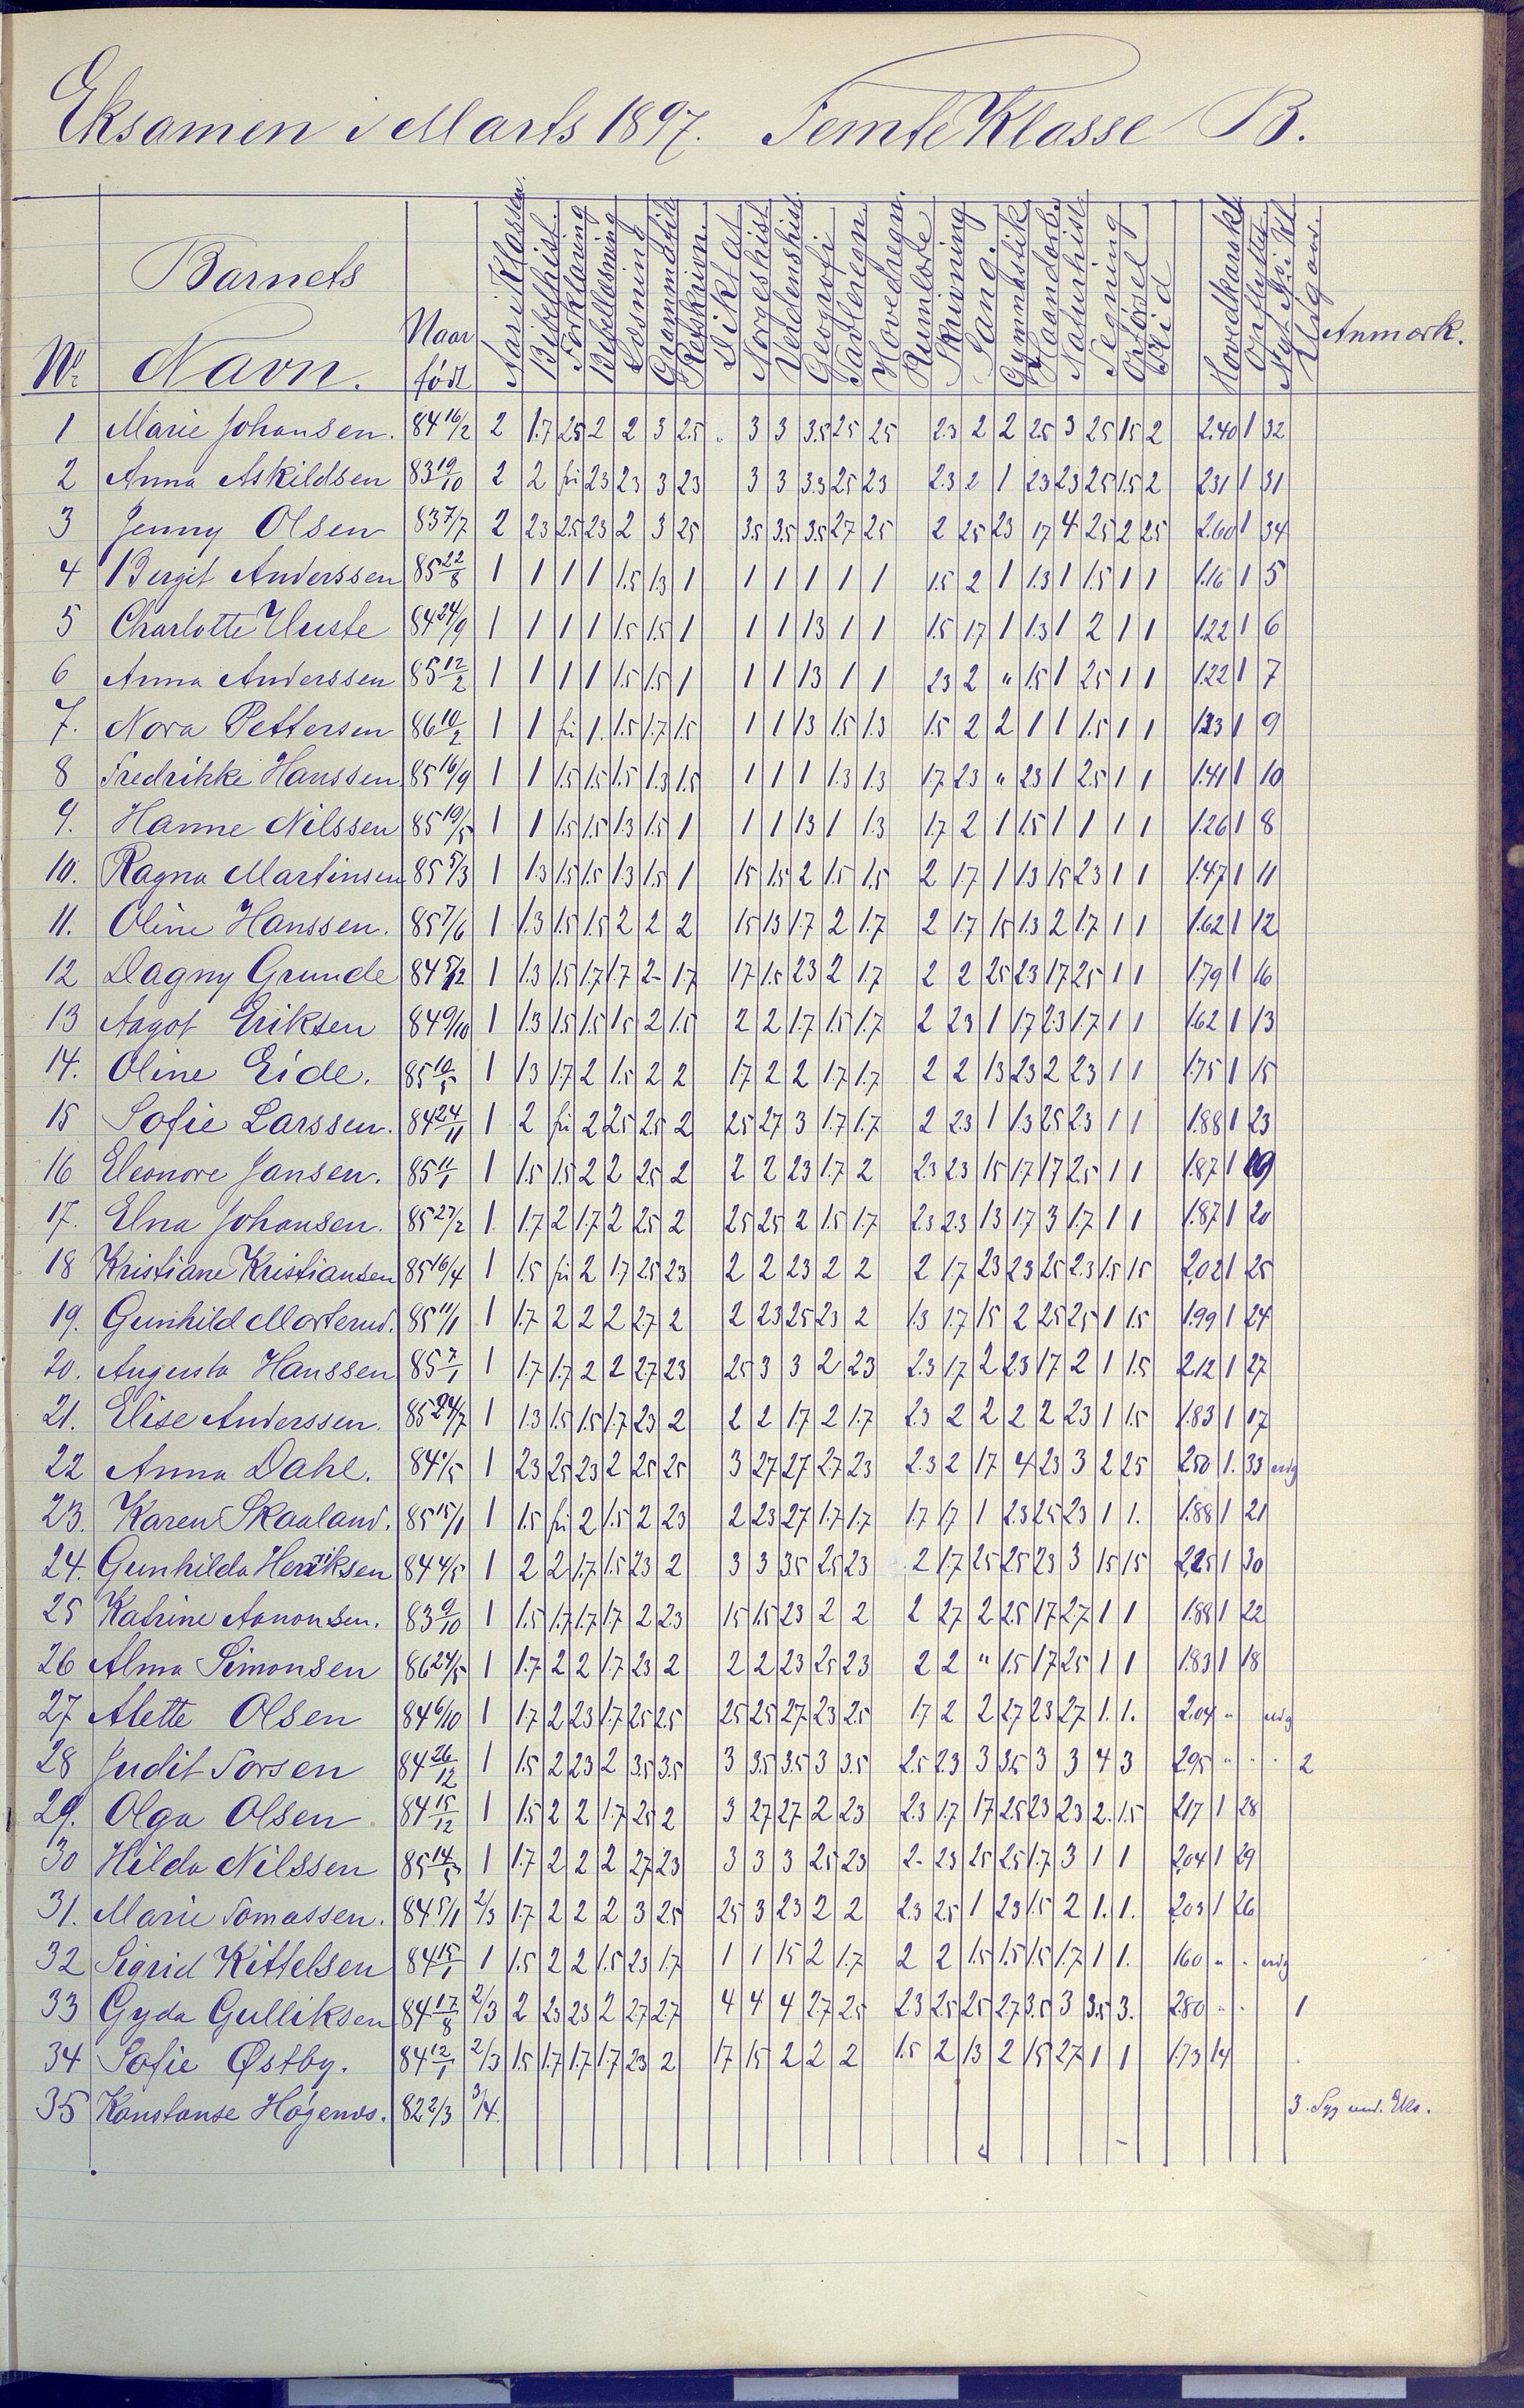 Eksamen i Marts 1897. Femte Klasse B.
Barnets
Nr. Navn. Naar født Aar i Klassen. Bibelhist. Forklaring Bibellæsning Læsning Grammatik Retskrivn. Diktat Norgeshist. Verdenshist. Geografi Tavleregn. Hovedregn. Rumlære Skrivning Sang. Gymnastik Haandarb. Naturhist. Tegning Opførsel Flid Hovedkarakt. Opflyttet Anmærk.
1 Marie Johansen. 84 16/2 2 1.7 2.5 2 2 3 2.5 " 3 3 3.5 2.5 2.5 2.3 2 2 2.5 3 2.5 1.5 2 2.40 1 32
2 Anna Askildsen 83 19/10 2 2 fri 2.3 2.3 3 2.3 3 3 3.3 2.5 2.3 2.3 2 1 2.3 2.3 2.5 1.5 2 2.31 1 31
3 Jenny Olsen 83 7/7 2 2.3 2.5 2.3 2 3 2.5 3.5 3.5 3.5 2.7 2.5 2 2.5 2.3 1.7 4 2.5 2 2.5 2.60 1 34
4 Bergit Anderssen 85 22/8 1 1 1 1 1.5 1.3 1 1 1 1 1 1 1.5 2 1 1.3 1 1.5 1 1 1.16 1 5
5 Charlotte 84 24/9 1 1 1 1 1.5 1.5 1 1 1 1.3 1 1 1.5 1.7 1 1.3 1 2 1 1 1.22 1 6
6 Anna Anderssen 85 12/2 1 1 1 1 1.5 1.5 1 1 1 1.3 1 1 2.3 2 " 1.5 1 2.5 1 1 1.22 1 7
7. Nora Pettersen 86 10/2 1 1 fri 1. 1.5 1.7 1.5 1 1 1.3 1.5 1.3 1.5 2 2 1 1 1.5 1 1 1.23 1 9
8 Fredrikke Hanssen 85 16/9 1 1 1.5 1.5 1.5 1.3 1.5 1 1 1 1.3 1.3 1.7 2.3 " 2.3 1 2.5 1 1 1.41 1 10
9. Hanne Nilssen 85 19/5 1 1 1.5 1.5 1.3 1.5 1 1 1 1.3 1 1.3 1.7 2 1 1.5 1 1 1 1 1.26 1 8
10. Ragna Martinsen 85 5/3 1 1.3 1.5 1.5 1.3 1.5 1 1.5 1.5 2 1.5 1.5 2 1.7 1 1.3 1.5 2.3 1 1 1.47 1 11
11. Oline Hanssen. 85 7/6 1 1.3 1.5 1.5 2 2 2 1.5 1.3 1.7 2 1.7 2 1.7 1.5 1.3 2 1.7 1 1 1.62 1 12
12 Dagny Grunde 84 5/12 1 1.3 1.5 1.7 1.7 2- 1.7 1.7 1.5 2.3 2 1.7 2 2 2.5 2.3 1.7 2.5 1 1 1.79 1 16
13 Aagot Eriksen 84 9/10 1 1.3 1.5 1.5 1.5 2 1.5 2 2 1.7 1.5 1.7 2 2.3 1 1.7 2.3 1.7 1 1 1.62 1 13
14. Oline Eide. 85 10/5 1 1.3 1.7 2 1.5 2 2 1.7 2 2 1.7 1.7 2 2 1.3 2.3 2 2.3 1 1 1.75 1 15
15 Sofie Larssen. 84 24/11 1 2 fri 2 2.5 2.5 2 2.5 2.7 3 1.7 1.7 2 2.3 1 1.3 2.5 2.3 1 1 1.88 1 23
16 Eleonore Jansen. 85 11/1 1 1.5 1.5 2 2 2.5 2 2 2 2.3 1.7 2 2.3 2.3 1.5 1.7 1.7 2.5 1 1 1.87 1 19
17. Elna Johansen. 85 27/2 1. 1.7 2 1.7 2 2.5 2 2.5 2.5 2 1.5 1.7 2.3 2.3 1.3 1.7 3 1.7 1 1 1.87 1 20
18 Kristiane Kristiansen 85 16/4 1 1.5 fri 2 1.7 2.5 2.3 2 2 2.3 2 2 2 1.7 2.3 2.3 2.5 2.3 1.5 1.5 2.02 1 25
19. Gunhild 85 11/1 1 1.7 2 2 2 2.7 2 2 2.3 2.5 2.3 2 1.3 1.7 1.5 2 2.5 2.5 1 1.5 1.99 1 24
20. Augusta Hanssen 85 7/1 1 1.7 1.7 2 2 2.7 2.3 2.5 3 3 2 2.3 2.3 1.7 2 2.3 1.7 2 1 1.5 2.12 1 27
21. Elise Anderssen. 85 24/7 1 1.3 1.5 1.5 1.7 2.3 2 2 2 1.7 2 1.7 2.3 2 2 2 2 2.3 1 1.5 1.83 1 17
22 Anna Dahl. 84 4/5 1 2.3 2.5 2.3 2 2.5 2.5 3 2.7 2.7 2.7 2.3 2.3 2 1.7 4 2.3 3 2 2.5 2.50 1. 33
23. Karen Skaaland. 85 15/1 1 1.5 fri 2 1.5 2 2.3 2 2.3 2.7 1.7 1.7 1.7 1.7 1 2.3 2.5 2.3 1 1. 1.88 1 21
24. Gunhilda Henriksen 84 4/5 1 2 2 1.7 1.5 2.3 2 3 3 3.5 2.5 2.3 2 1.7 2.5 2.5 2.3 3 1.5 1.5 2.25 1 30
25 Katrine Aanonsen. 83 9/10 1 1.5 1.7 1.7 1.7 2 2.3 1.5 1.5 2.3 2 2 2 2.7 2 2.5 1.7 2.7 1 1 1.88 1 22
26 Alma Simonsen 86 24/5 1 1.7 2 2 1.7 2.3 2 2 2 2.3 2.5 2.3 2 2 " 1.5 1.7 2.5 1 1 1.83 1 18
27 Alette Olsen 84 6/10 1 1.7 2 2.3 1.7 2.5 2.5 2.5 2.5 2.7 2.3 2.5 1.7 2 2 2.7 2.3 2.7 1. 1. 2.04 "
28 Judit Torsen 84 26/12 1 1.5 2 2.3 2 3.5 3.5 3 3.5 3.5 3 3.5 2.5 2.3 3 3.5 3 3 4 3 2.95 " " " 2
29. Olga Olsen 84 15/12 1 1.5 2 2 1.7 2.5 2 3 2.7 2.7 2 2.3 2.3 1.7 1.7 2.5 2.3 2.3 2. 1.5 2.17 1 28
30 Hilda Nilssen 85 14/5 1 1.7 2 2 2 2.7 2.3 3 3 3 2.5 2.3 2- 2.3 2.5 2.5 1.7 3 1 1 2.04 1 29
31. Marie Tomassen. 84 5/1 2/3 1.7 2 2 2 3 2.5 2.5 3 2.3 2 2 2.3 2.5 1 2.3 1.5 2 1. 1. 2.03 1 26
32 Sigrid Kittelsen 84 15/1 1 1.5 2 2 1.5 2.3 1.7 1 1 1.5 2 1.7 2 2 1.5 1.5 1.5 1.7 1 1. 1.60 " "
33 Gyda Gulliksen 84 17/8 2/3 2 2.3 2.3 2 2.7 2.7 4 4 4 2.7 2.5 2.3 2.5 2.5 2.7 3.5 3 3.5 3. 2.80 " " 1
34 Sofie Østby. 84 12/1 2/3 1.5 1.7 1.7 1.7 2.3 2 1.7 1.5 2 2 2 1.5 2 1.3 2 1.5 2.7 1 1 1.73 14
35 Konstanse Høgenes. 82 2/3 3/4. 3. Syg und. Eks.